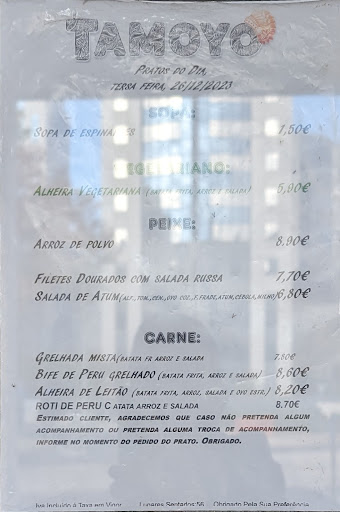 TAMOYO
PRATOS DO DIA,
TERSA FEIRA, 26/12/2023
SOPA:
SOPA DE ESPINAFRES 1,50€
VEGETARIANO:
ALHEIRA VEGETARIANA (BATATA FRITA, ARROZ E SALADA) 5,90€
PEIXE:
ARROZ DE POLVO 8.90€
FILETES DOURADOS COM SALADA RUSSA 7,70€
SALADA DE ATUM(ALF.,TOM.,CEN.,OVO COZ.,F.FRADE,ATUM,CEBOLA,MILHO) 6,80€
CARNE:
GRELHADA MISTA(BATATA FR ARROZ E SALADA 7.80€
BIFE DE PERU GRELHADO (BATATA FRITA, ARROZ E SALADA) 8,60€
ALHEIRA DE LEITÃO (BATATA FRITA, ARROZ, SALADA E OVO ESTR.) 8,20€
ROTI DE PERU C ATATA ARROZ E SALADA 8.70€
ESTIMADO CLIENTE, AGRADECEMOS QUE CASO NÃO PRETENDA ALGUM
ACOMPANHAMENTO OU PRETENDA ALGUMA TROCA DE ACOMPANHAMENTO,
INFORME NO MOMENTO DO PEDIDO DO PRATO. OBRIGADO.
Iva Incluido á Taxa em Vigor Lugares Sentados 56 Obrigado Pela Sua Preferência